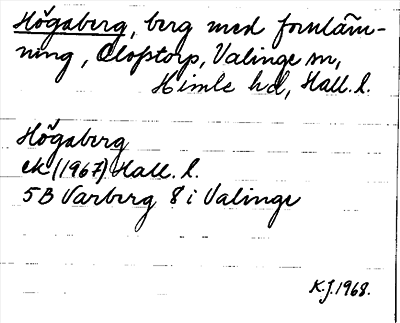 Högaberg, berg med fornläm-
ning, Olofstorp, Valinge sn,
Himle hd, Hall. l.
Högaberg
ek (1967) Hall. l.
5B Varberg 8 i Valinge
K.J. 1968.